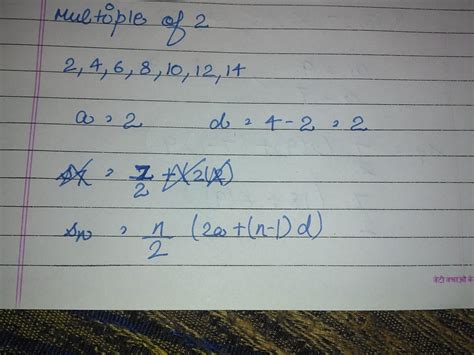 Multiple of 2
2, 4, 6, 8, 10, 12, 14
a = 2 d = 4 - 2 = 2
Sn = n/2 (2a + (n-1) d)
बेटी बचाओ